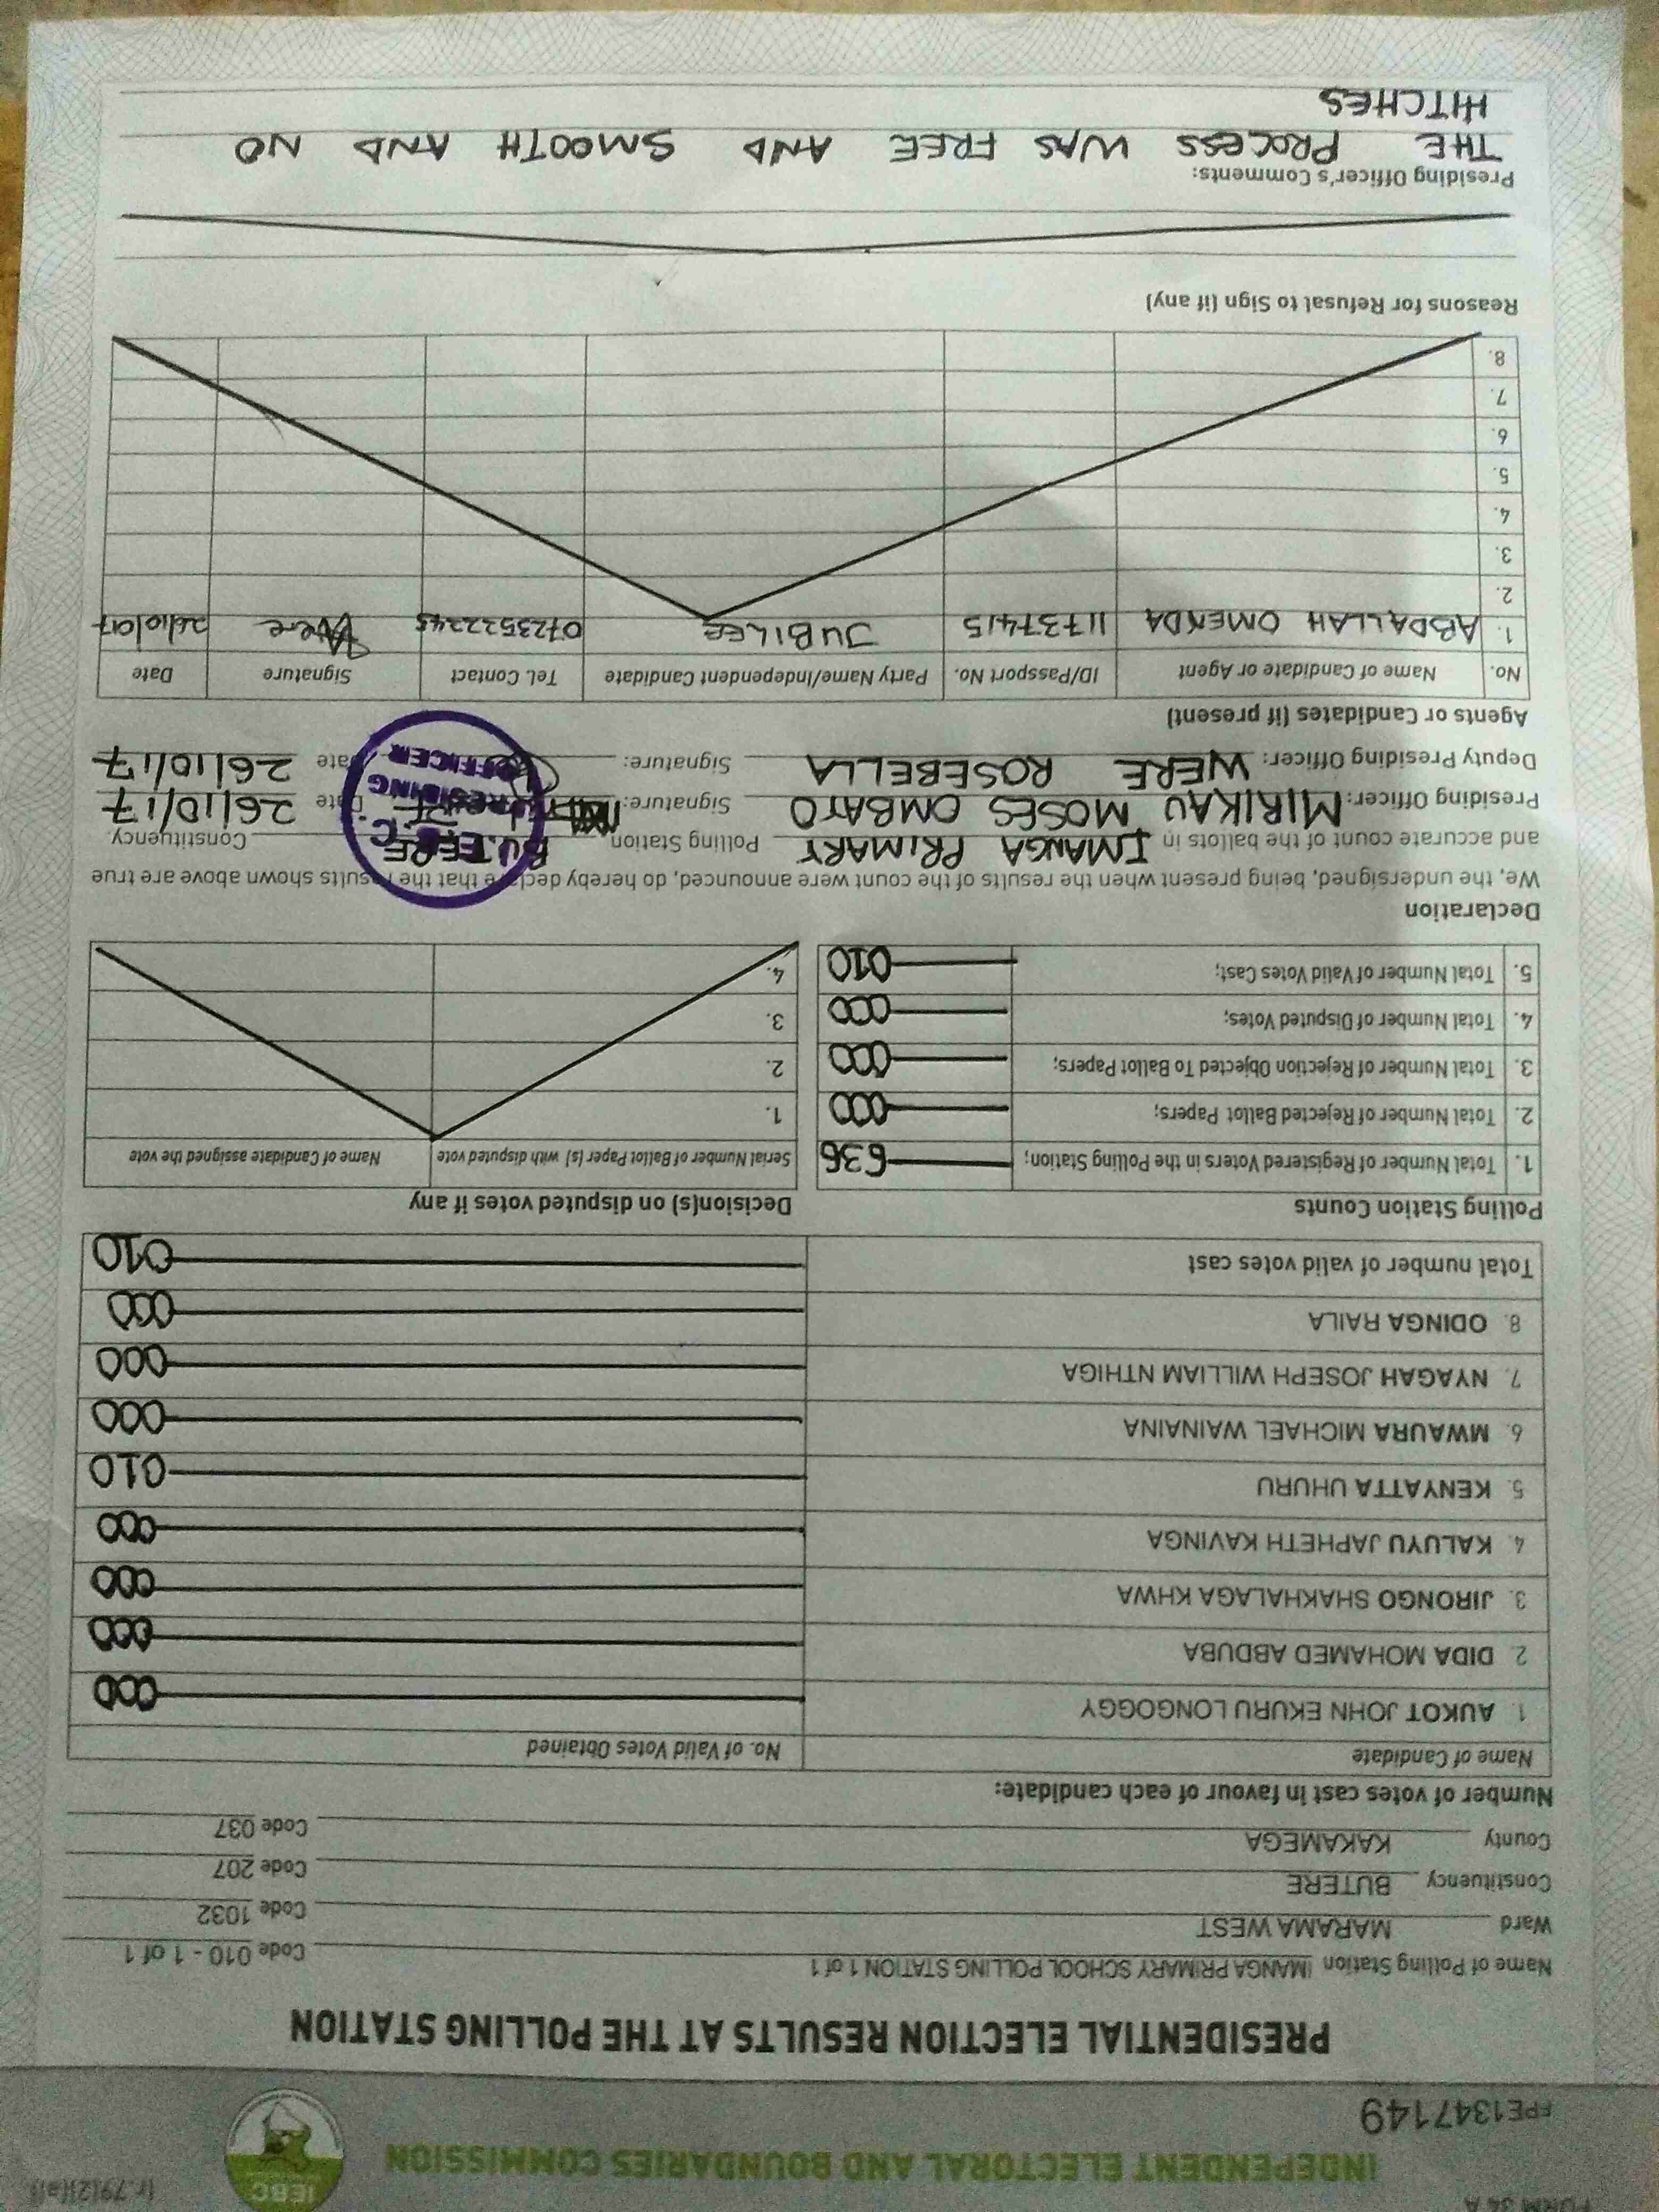 FORM 34 A
(r.79(2)(a))
INDEPENDENT ELECTORAL AND BOUNDARIES COMMISSION
IEBC
FPE1347149
PRESIDENTIAL ELECTION RESULTS AT THE POLLING STATION
Name of Polling Station IMANGA PRIMARY SCHOOL POLLING STATION 1 of 1 Code 010 - 1 of 1
Ward MARAMA WEST Code 1032
Constituency BUTERE Code 207
County KAKAMEGA Code 037
Number of votes cast in favour of each candidate:
Name of Candidate No. of Valid Votes Obtained
1. AUKOT JOHN EKURU LONGOGGY 000
2. DIDA MOHAMED ABDUBA 000
3. JIRONGO SHAKHALAGA KHWA 000
4. KALUYU JAPHETH KAVINGA 000
5. KENYATTA UHURU 010
6. MWAURA MICHAEL WAINAINA 000
7. NYAGAH JOSEPH WILLIAM NTHIGA 000
8. ODINGA RAILA 000
Total number of valid votes cast 010
Polling Station Counts Decision(s) on disputed votes if any
1. Total Number of Registered Voters in the Polling Station; 636 Serial Number of Ballot Paper (s) with disputed vote Name of Candidate assigned the vote
2. Total Number of Rejected Ballot Papers; 000 1.
3. Total Number of Rejection Objected To Ballot Papers; 000 2.
4. Total Number of Disputed Votes; 000 3.
5. Total Number of Valid Votes Cast; 010 4.
Declaration
We, the undersigned, being present when the results of the count were announced, do hereby declare that the results shown above are true
and accurate count of the ballots in IMANGA PRIMARY Polling Station BUTERE Constituency.
Presiding Officer: MIRIKAU MOSES OMBATO Signature: Date 26/10/17
Deputy Presiding Officer: WERE ROSEBELLA Signature: Date 26/10/17
PRESIDING
OFFICER
Agents or Candidates (if present)
No. Name of Candidate or Agent ID/Passport No. Party Name/Independent Candidate Tel. Contact Signature Date
1. ABDALLAH OMENDA 11737415 JUBILEE 0723522245 Were 26/10/017
2.
3.
4.
5.
6.
7.
8.
Reasons for Refusal to Sign (if any)
Presiding Officer's Comments:
THE PROCESS WAS FREE AND SMOOTH AND NO
HITCHES